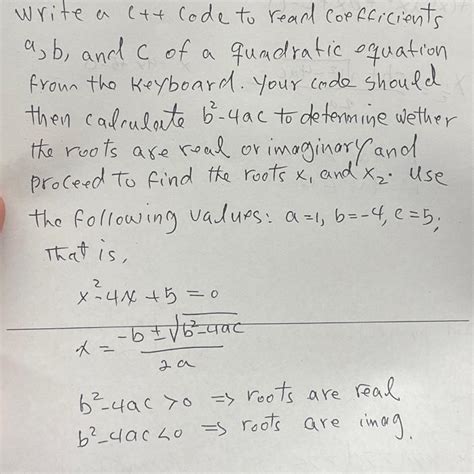 write a c++ code to read coefficients
a, b, and c of a quadratic equation
from the keyboard. Your code should
then calculate b²-4ac to determine wether
the roots are real or imaginary and
proceed to find the roots x₁ and x₂. Use
the following values: a=1, b=-4, c=5;
That is,
x²-4x+5=0
x = -b ± √b²-4ac / 2a
b²-4ac >0 => roots are real
b²-4ac <0 => roots are imag.